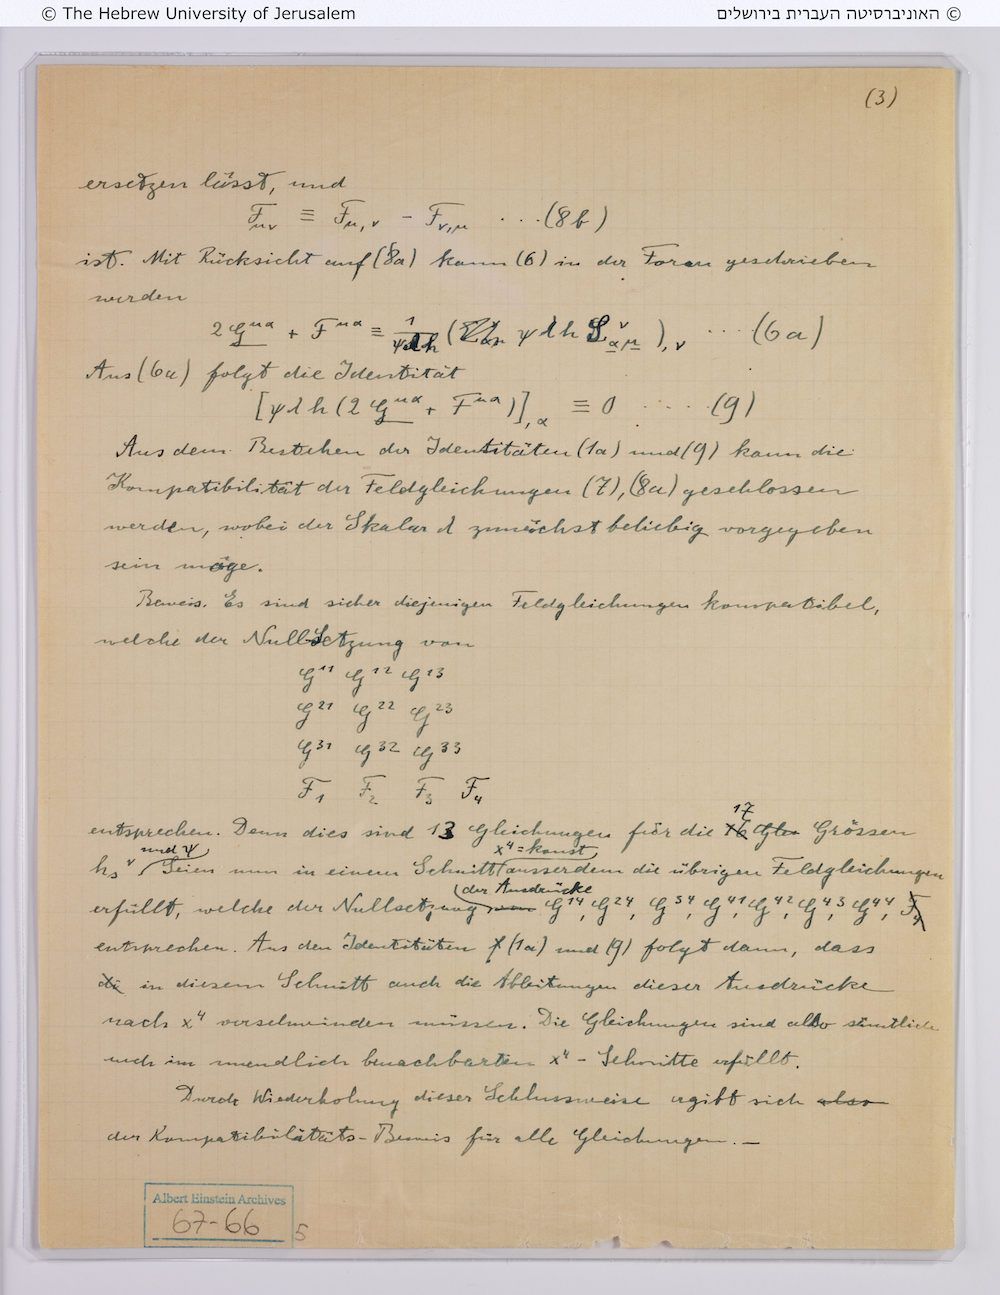 © The Hebrew University of Jerusalem
© האוניברסיטה העברית בירושלים
(3)
ersetzen lässt, und
F_μν ≡ F_μ,ν − F_ν,μ ...(8b)
ist. Mit Rücksicht auf (8a) kann (6) in der Form geschrieben
werden
2 G^μα + F^μα ≡ 1/ψλh ( ψ λ h S^ν_αμ ),ν ...(6a)
Aus (6a) folgt die Identität
[ψ λ h (2 G^μα + F^μα)],α ≡ 0 ....(9)
Aus dem Bestehen der Identitäten (1a) und (9) kann die
Kompatibilität der Feldgleichungen (7), (8a) geschlossen
werden, wobei der Skalar λ zunächst beliebig vorgegeben
sein möge.
Beweis. Es sind sicher diejenigen Feldgleichungen kompatibel,
welche der Nullsetzung von
G^11 G^12 G^13
G^21 G^22 G^23
G^31 G^32 G^33
F_1 F_2 F_3 F_4
entsprechen. Denn dies sind 13 Gleichungen für die 17 Grössen
h_s^ν und ψ. Seien nun in einem Schnitt x^4 = konst ausserdem die übrigen Feldgleichungen
erfüllt, welche der Nullsetzung der Ausdrücke G^14, G^24, G^34, G^41, G^42, G^43, G^44,
entsprechen. Aus den Identitäten (1a) und (9) folgt dann, dass
in diesem Schnitt auch die Ableitungen dieser Ausdrücke
nach x^4 verschwinden müssen. Die Gleichungen sind also sämtlich
auch im unendlich benachbarten x^4 - Schnitte erfüllt.
Durch Wiederholung dieser Schlussweise ergibt sich also
der Kompatibilitäts-Beweis für alle Gleichungen. —
Albert Einstein Archives
67-66
5